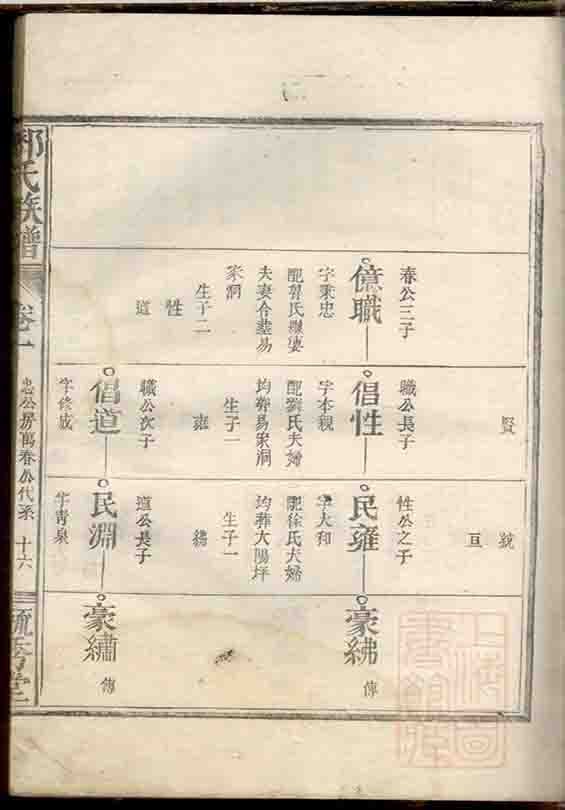 春公三子
億職
字秉忠
配郭氏繼婁
夫妻合塟易
家洞
生子二
性
道
賢
職公長子
倡性
字本親
配劉氏夫婦
均葬易家洞
生子一
雍
職公次子
倡道
字修成
號
亘
性公之子
民雍
字大和
配徐氏夫婦
均葬大陽坪
生子一
道公長子
民淵
字青泉
豪紼
傳
豪繡
傳
氏族譜
卷一
忠公房萬春公代系
十六
上海圖
書館藏